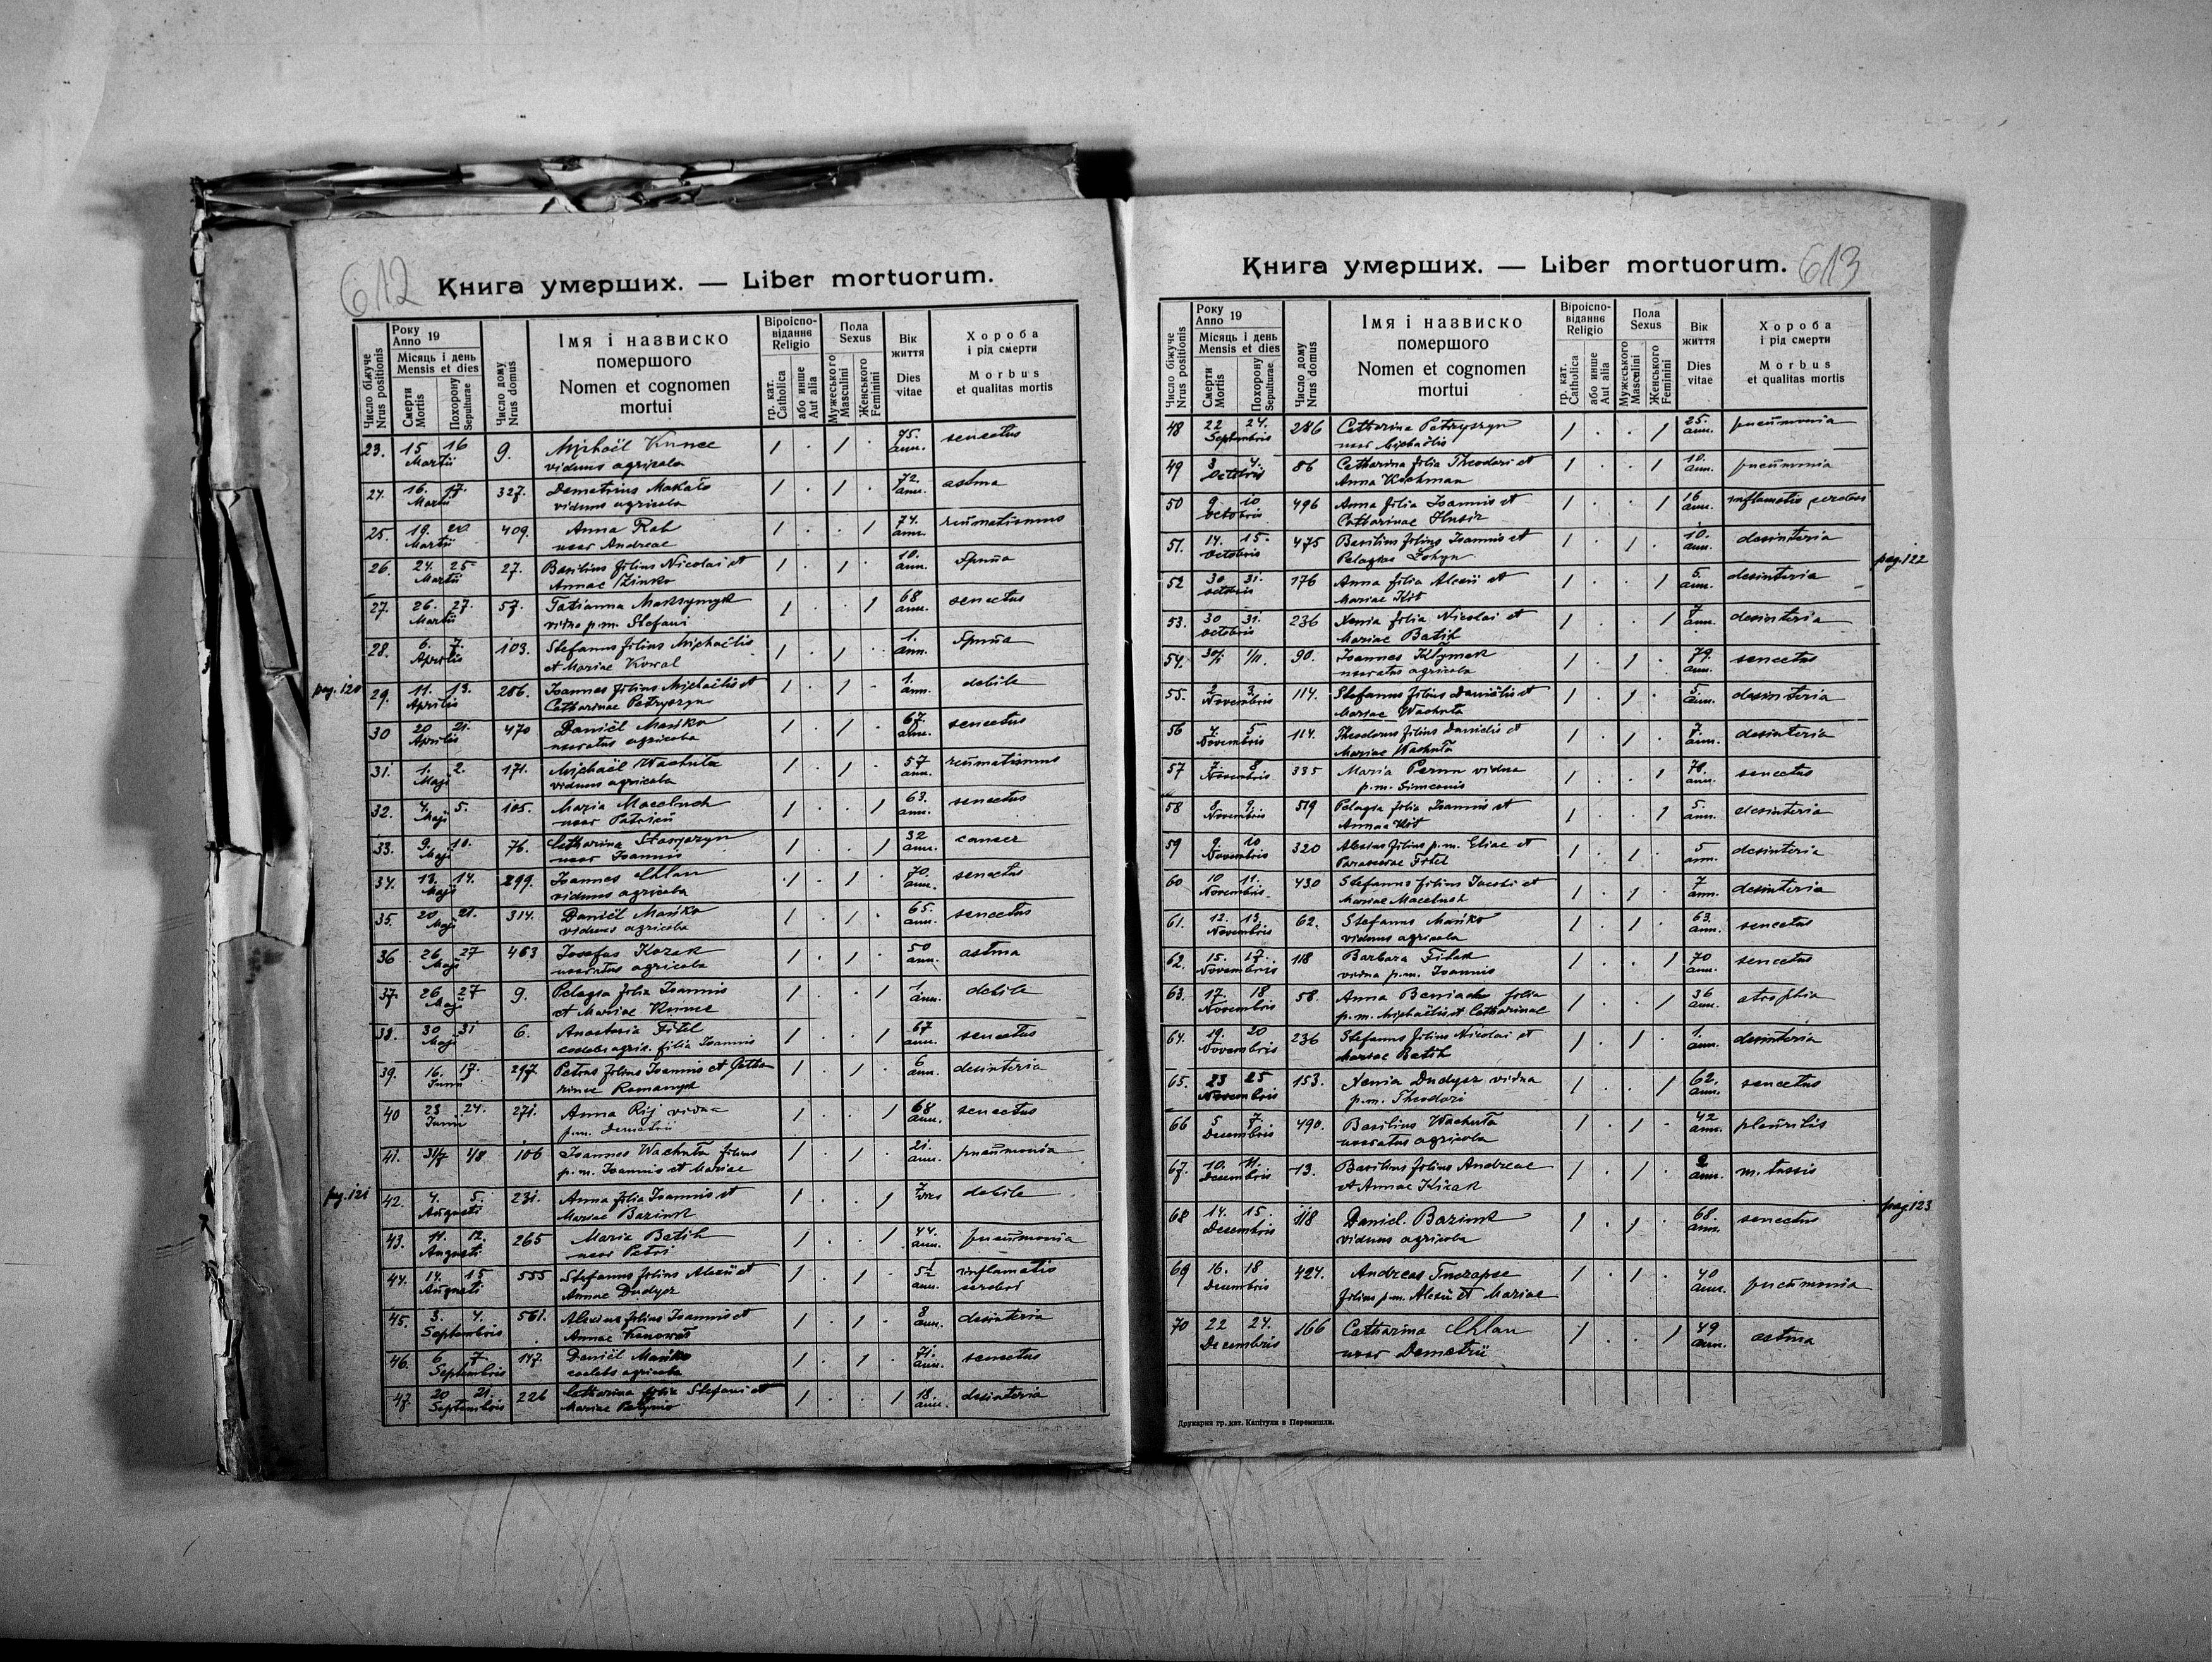 612
Книга умерших. — Liber mortuorum.
Число біжуче
Nrus positionis
Року
Anno 19
Місяць і день
Mensis et dies
Смерти
Mortis
Похорону
Sepulturae
Число дому
Nrus domus
Імя і назвиско
помершого
Nomen et cognomen
mortui
Віроіспо-
віданнє
Religio
гр. кат.
Catholica
або инше
Aut alia
Пола
Sexus
Мужеського
Masculini
Женського
Feminini
Вік
життя
Dies
vitae
Хороба
і рід смерти
Morbus
et qualitas mortis
23. 15 16 9. Michaël 75. senectus
Martii viduus agricola ann.
24. 16. 17. 327. Demetrius 72. astma
Martii viduus agricola ann.
25. 19. 20. 409. Anna Rab 74. reumatismus
Martii uxor Andreae ann.
26. 24. 25 27. Basilius filius Nicolai et 10. гріпа
Martii Annae ann.
27. 26. 27. 57. Tatianna Maksymyk 68 senectus
Martii vidua p.m. Stefani ann.
28. 6. 7. 103. Stefanus filius Michaëlis 1. гріпа
Aprilis et Mariae Kowal ann.
pag. 120
29. 11. 13. 286. Ioannes filius Michaëlis et 1. debile
Aprilis Catharinae Petryszyn ann.
30 20 21. 470 Daniël Mańko 67. senectus
Aprilis uxoratus agricola ann.
31. 1. 2. 171. Michaël Wachuta 57 reumatismus
Maji viduus agricola ann.
32. 4. 5. 105. Maria Maceluch 63. senectus
Maji uxor Patricii ann.
33. 9. 10. 76. Catharina 32 cancer
Maji uxor Ioannis ann.
34. 13. 14. 299. Ioannes Chlan 70. senectus
Maji viduus agricola ann.
35. 20 21. 314. Daniël Mańko 65. senectus
Maji viduus agricola ann.
36 26 27 463 Iosefus Kozak 50 astma
Maji uxoratus agricola ann.
37. 26 27 9. Pelagia filia Ioannis 1. debile
Maji et Mariae ann.
38. 30 31 6. Anastasia Fitel 67 senectus
Maji caelebs agric. filia Ioannis ann.
39. 16. 17. 297 Petrus filius Ioannis et Catha- 6 desinteria
Junii rinae Romanyk ann.
40 23 24. 271. Anna Rij vidua 68 senectus
Junii p.m. Demetrii ann.
41. 31/7 1/8 106 Ioannes Wachuta filius 21. pneumonia
p.m. Ioannis et Mariae ann.
pag. 121
42. 4. 5. 231. Anna filia Ioannis et 7 debile
Augusti Mariae Baziuk
43. 11. 12. 265 Maria Batih 44. pneumonia
Augusti uxor Petri ann.
44. 14. 15 555 Stefanus filius Alexii et 5½ inflamatio
Augusti Annae Dudycz ann.
45. 3. 4. 561. Alexius filius Ioannis et 8 desinteria
Septembris Annae ann.
46. 6 7 147. Daniël Mańko 71. senectus
Septembris caelebs agricola ann.
47. 20 21. 226 Catharina filia Stefani et 18. desinteria
Septembris Mariae ann.
613
Книга умерших. — Liber mortuorum.
Число біжуче
Nrus positionis
Року
Anno 19
Місяць і день
Mensis et dies
Смерти
Mortis
Похорону
Sepulturae
Число дому
Nrus domus
Імя і назвиско
помершого
Nomen et cognomen
mortui
Віроіспо-
віданнє
Religio
гр. кат.
Catholica
або инше
Aut alia
Пола
Sexus
Мужеського
Masculini
Женського
Feminini
Вік
життя
Dies
vitae
Хороба
і рід смерти
Morbus
et qualitas mortis
48 22 24. 286 Catharina Petryszyn 25. pneumonia
Septembris uxor Michaëlis ann.
49 3 4. 86 Catharina filia Theodori et 10. pneumonia
Octobris Anna Kochman ann.
50 9 10 496 Anna filia Ioannis et 16 inflamatio
octobris Catharinae Husir ann.
51. 14. 15. 475 Basilius filius Ioannis et 10. desinteria
Octobris Pelagiae Łohyn ann.
pag. 122
52 30 31. 176 Anna filia Alexii et 5. desinteria
octobris Mariae Kit ann.
53. 30 31. 236 Xenia filia Nicolai et 7 desinteria
octobris Mariae Batih ann.
54. 1/11 90. Ioannes Klymek 79. senectus
uxoratus agricola ann.
55. 2 3. 114. Stefanus filius Daniëlis et 5. desinteria
Novembris Mariae Wachuta ann.
56 4. 5 114. Theodorus filius Danielis et 7. desinteria
Novembris Mariae Wachuta ann.
57 7. 8 335 Maria Perun vidua 78. senectus
Novembris p.m. Simeonis ann.
58 8 9. 519 Pelagia filia Ioannis et 5. desinteria
Novembris Annae Kit ann.
59 9. 10 320 Alexius filius p.m. Eliae et 5 desinteria
Novembris Parasceviae Fitel ann.
60 10 11. 430 Stefanus filius Iacobi et 7 desinteria
Novembris Mariae Maceluch ann.
61. 12. 13. 62. Stefanus Mańko 63. senectus
Novembris viduus agricola ann.
62. 15. 17. 118 Barbara 70 senectus
Novembris vidua p.m. Ioannis ann.
63. 17. 18 58. Anna filia 36 atrophia
Novembris p.m. Michaëlis et Catharinae ann.
64. 19. 20 236 Stefanus filius Nicolai et 1. desinteria
Novembris Mariae Batih ann.
65. 23 25 153. Xenia Dudycz vidua 62. senectus
Novembris p.m. Theodori ann.
66 5 7. 490. Basilius Wachuta 42 pleuritis
Decembris uxoratus agricola ann.
67. 10. 11. 13. Basilius filius Andreae 2 m. tussis
Decembris et Annae ann.
pag. 123
68 14. 15. 118 Daniel. Baziuk 68. senectus
Decembris viduus agricola ann.
69 16. 18 424. Andreas 40 pneumonia
Decembris filius p.m. Alexii et Mariae ann.
70 22 24. 166 Catharina Chlan 49 astma
Decembris uxor Demetrii ann.
Друкарня гр. кат. Капітули в Перемишли.